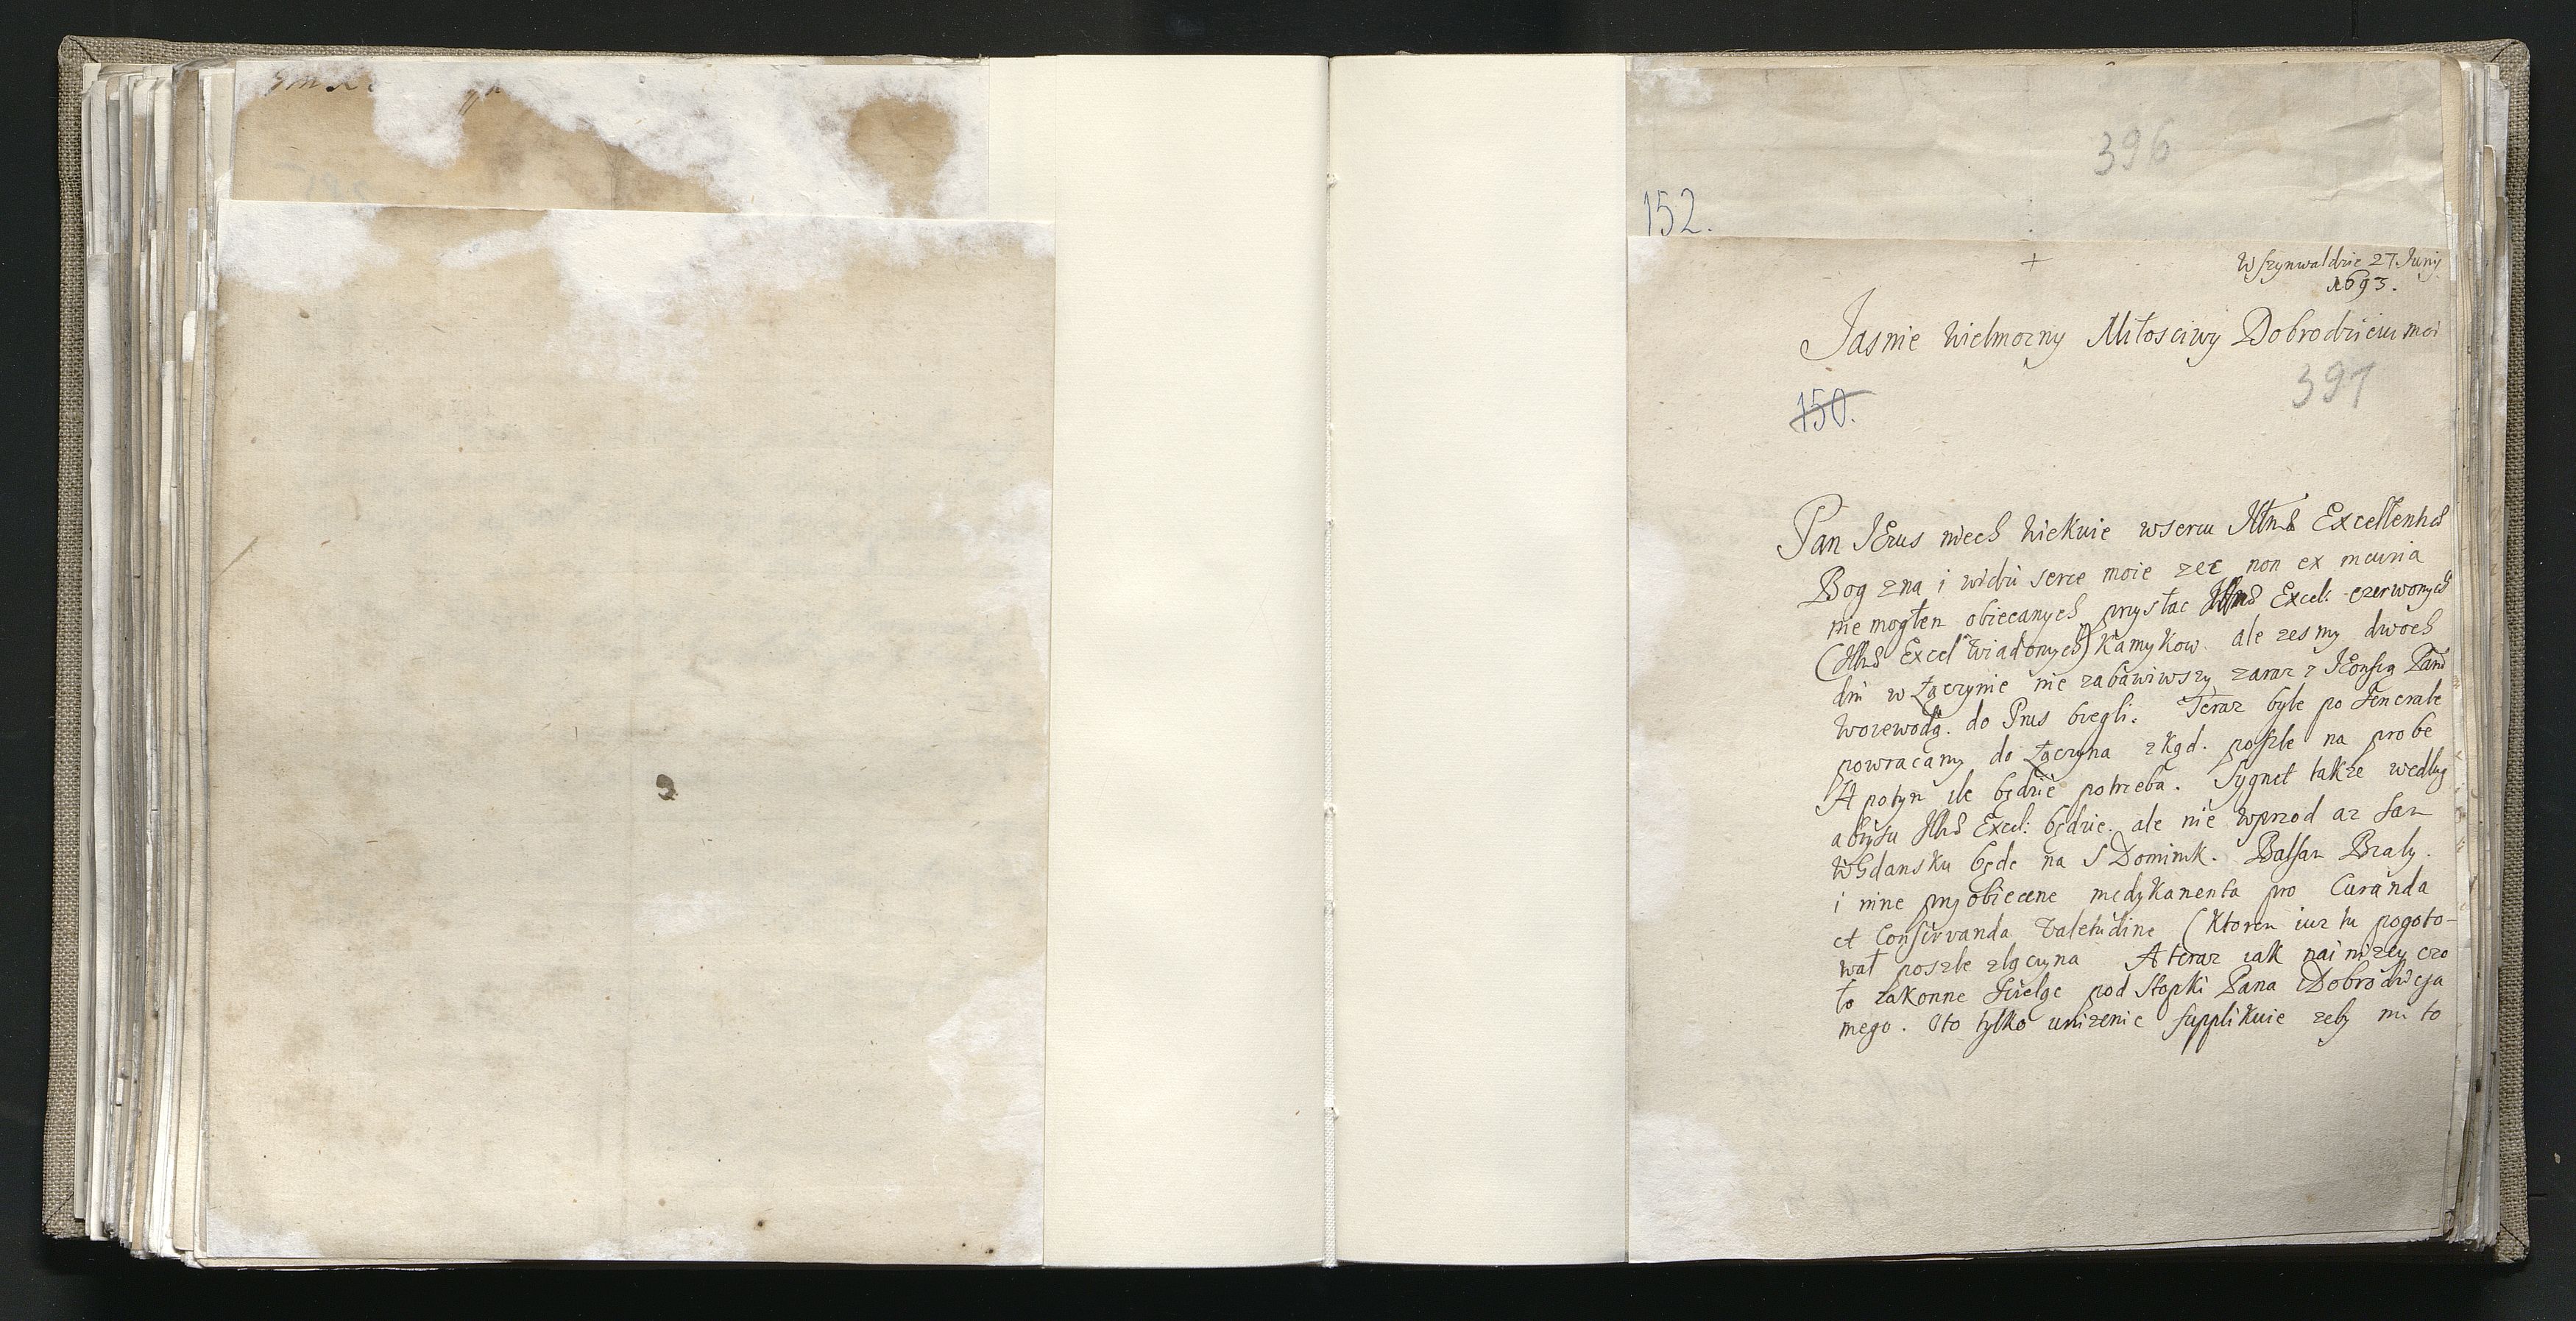 396
152.
+
W szynwaldzie 27 Junij
1693.
Jasnie Wielmozny Miłosciwy Dobrodzieiu moi
397
150.
Pan JEzus niech kiekuie wsercu Excellentiae
Bog zna i widzi serce moie zec non ex incuria
nie mogłem obiecanych przysłac Excel: czerwonych
Excel wiadomych) Kamykow. ale zesmy dwoch
dni w Łęczynie nie zabawiwszy zaraz z Panem
Woiewodą. do Prus biegli. Teraz byle po Generale
powracamy do Łęczyna zkąd. poszle na probe
A potym ile będzie potrzeba. Sygnet takze według
abrysu Excel: będzie. ale nie wprzod az sam
w Gdansku będe na S Dominik. Balsam Bialy.
i inne przyobiecane medykamenta pro Curanda
et Conservanda Valetudine (Ktorem iuz tu pogoto-
wał poszle złęczyna A teraz iak nai nizey czo
ło zakonne scielge pod Stopki Pana Dobrodzieja
mego. O to tylko unizenie supplikuie zeby mi to